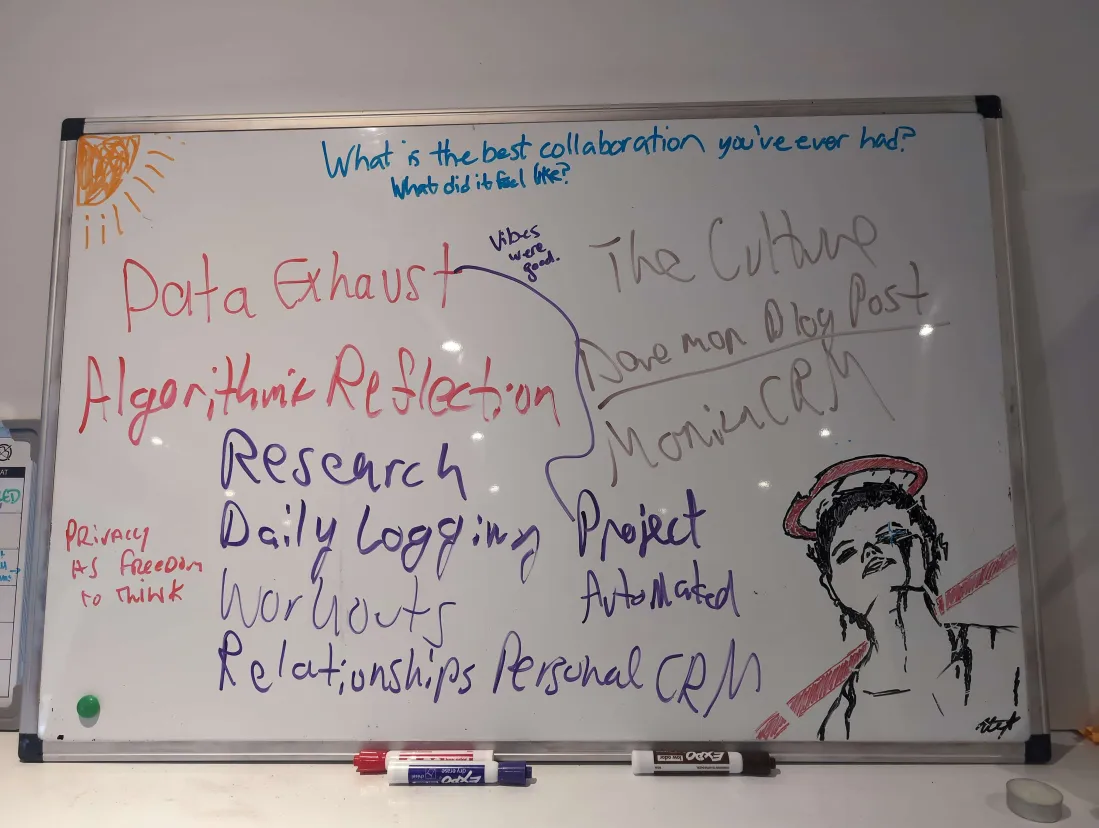 What is the best collaboration you've ever had?
What did it feel like?
Vibes
were
good.
Data Exhaust
Algorithmic Reflection
The Culture
Daremon Blog Post
Monica CRM
Research
Daily Logging Project
Workouts Automated
Relationships Personal CRM
PRIVACY
AS FREEDOM
to THINK
EXPO
EXPO